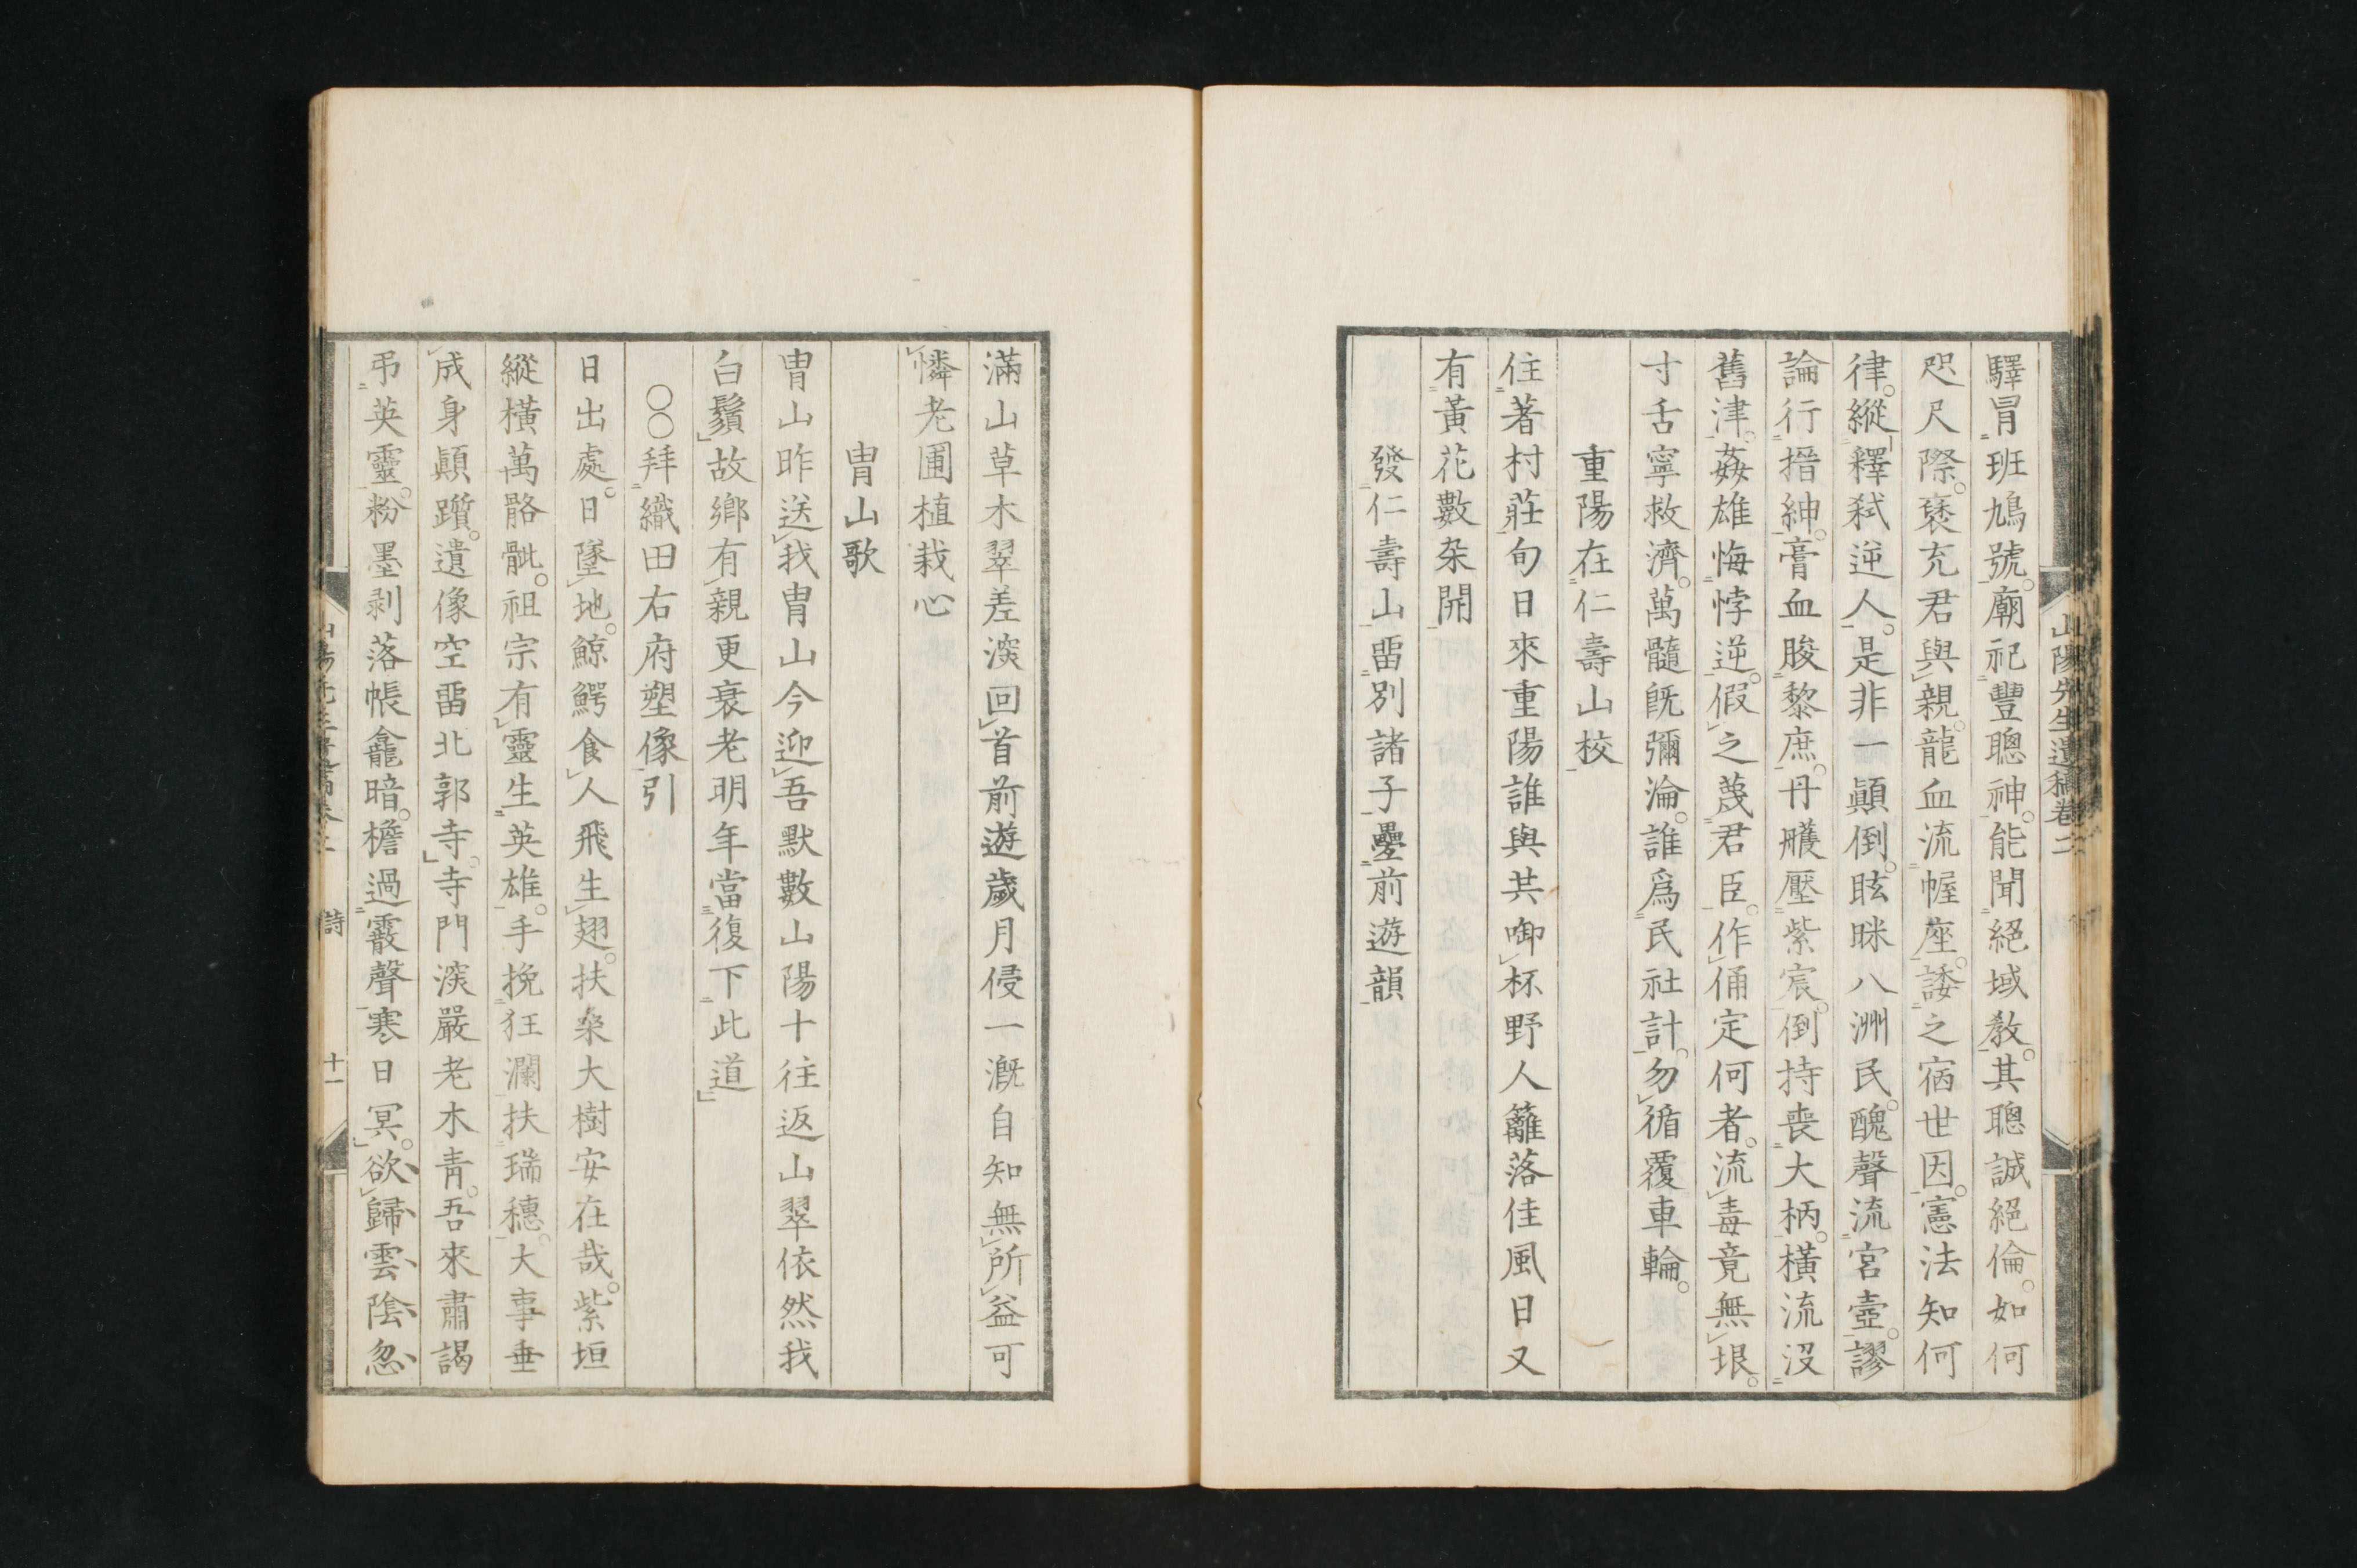 山陽先生遺稿卷二
驛冐班鳩號。廟祀豐聰神。能聞絕域教。其聰誠絕倫。如何
咫尺際。褒充君與親。龍血流幄座。諉之宿世因。憲法知何
律。縱釋弑逆人。是非一顚倒。眩眯八洲民。醜聲流宮壼。謬
論行搢紳。膏血朘黎庶。丹雘壓紫宸。倒持喪大柄。橫流沒
舊津。姦雄悔悖逆。假之蔑君臣。作俑定何者。流毒竟無垠。
寸舌寧救濟。萬髓旣彌淪。誰爲民社計。勿循覆車輪。
重陽在仁壽山校
住著村莊旬日來重陽誰與共啣杯野人籬落佳風日又
有黃花數朶開
發仁壽山畱別諸子疊前遊韻
滿山草木翠差深回首前遊歲月侵一漑自知無所益可
憐老圃植栽心
冑山歌
冑山昨送我冑山今迎吾默數山陽十往返山翠依然我
白鬚故鄉有親更衰老明年當復下此道
○○拜織田右府塑像引
日出處。日墜地。鯨鰐食人飛生翅。扶桑大樹安在哉。紫垣
縱橫萬骼骴。祖宗有靈生英雄。手挽狂瀾扶瑞穗。大事垂
成身顚躓。遺像空畱北郭寺。寺門深嚴老木青。吾來肅謁
弔英靈。粉墨剥落帳龕暗。檐過霰聲寒日冥。欲歸雲陰忽
詩
十一